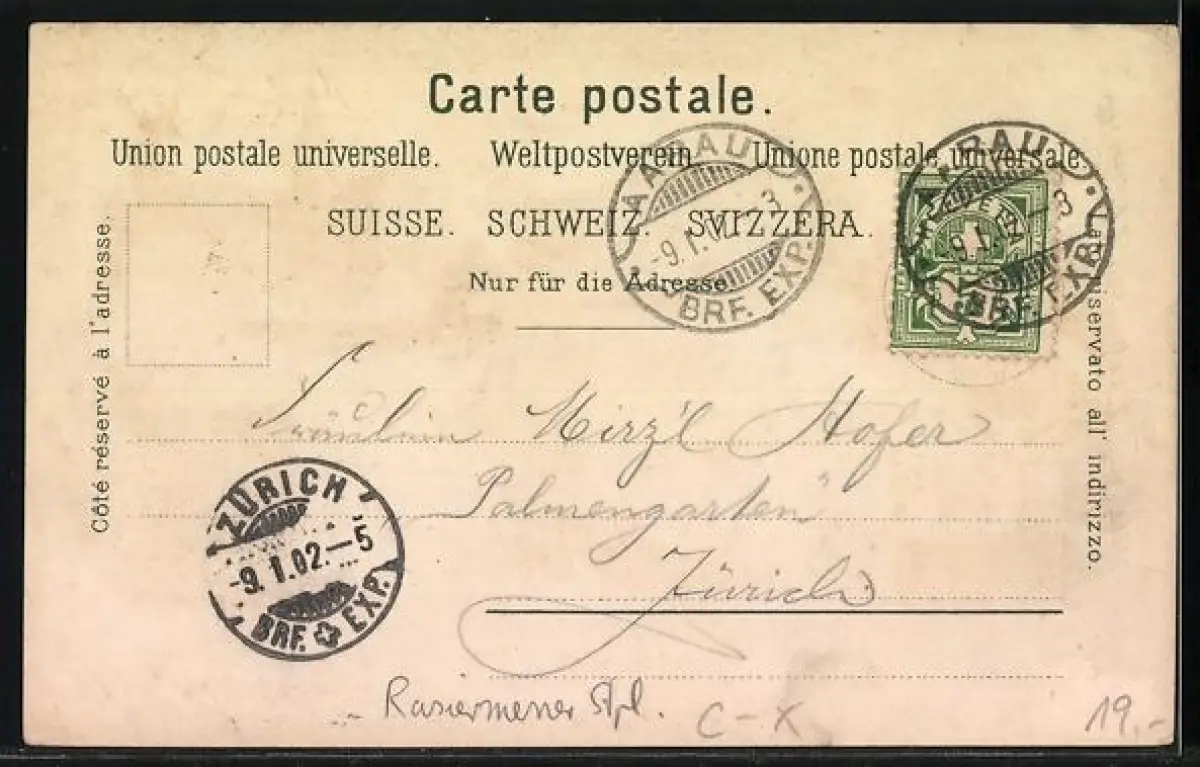 Carte postale.
Union postale universelle. Weltpostverein. Unione postale universale.
SUISSE. SCHWEIZ. SVIZZERA.
Nur für die Adresse.
Côté réservé à l'adresse.
Lato riservato all' indirizzo.
AARAU
-9.I.02.-3
BRF. EXP.
AARAU
9.I.02.-3
BRF. EXP.
5
Fräulein Mirz'l Hofer
"Palmengarten"
Zürich
ZÜRICH
-9.I.02.-5
BRF. EXP.
Rasiermesser Stpl.
C-X
19.-